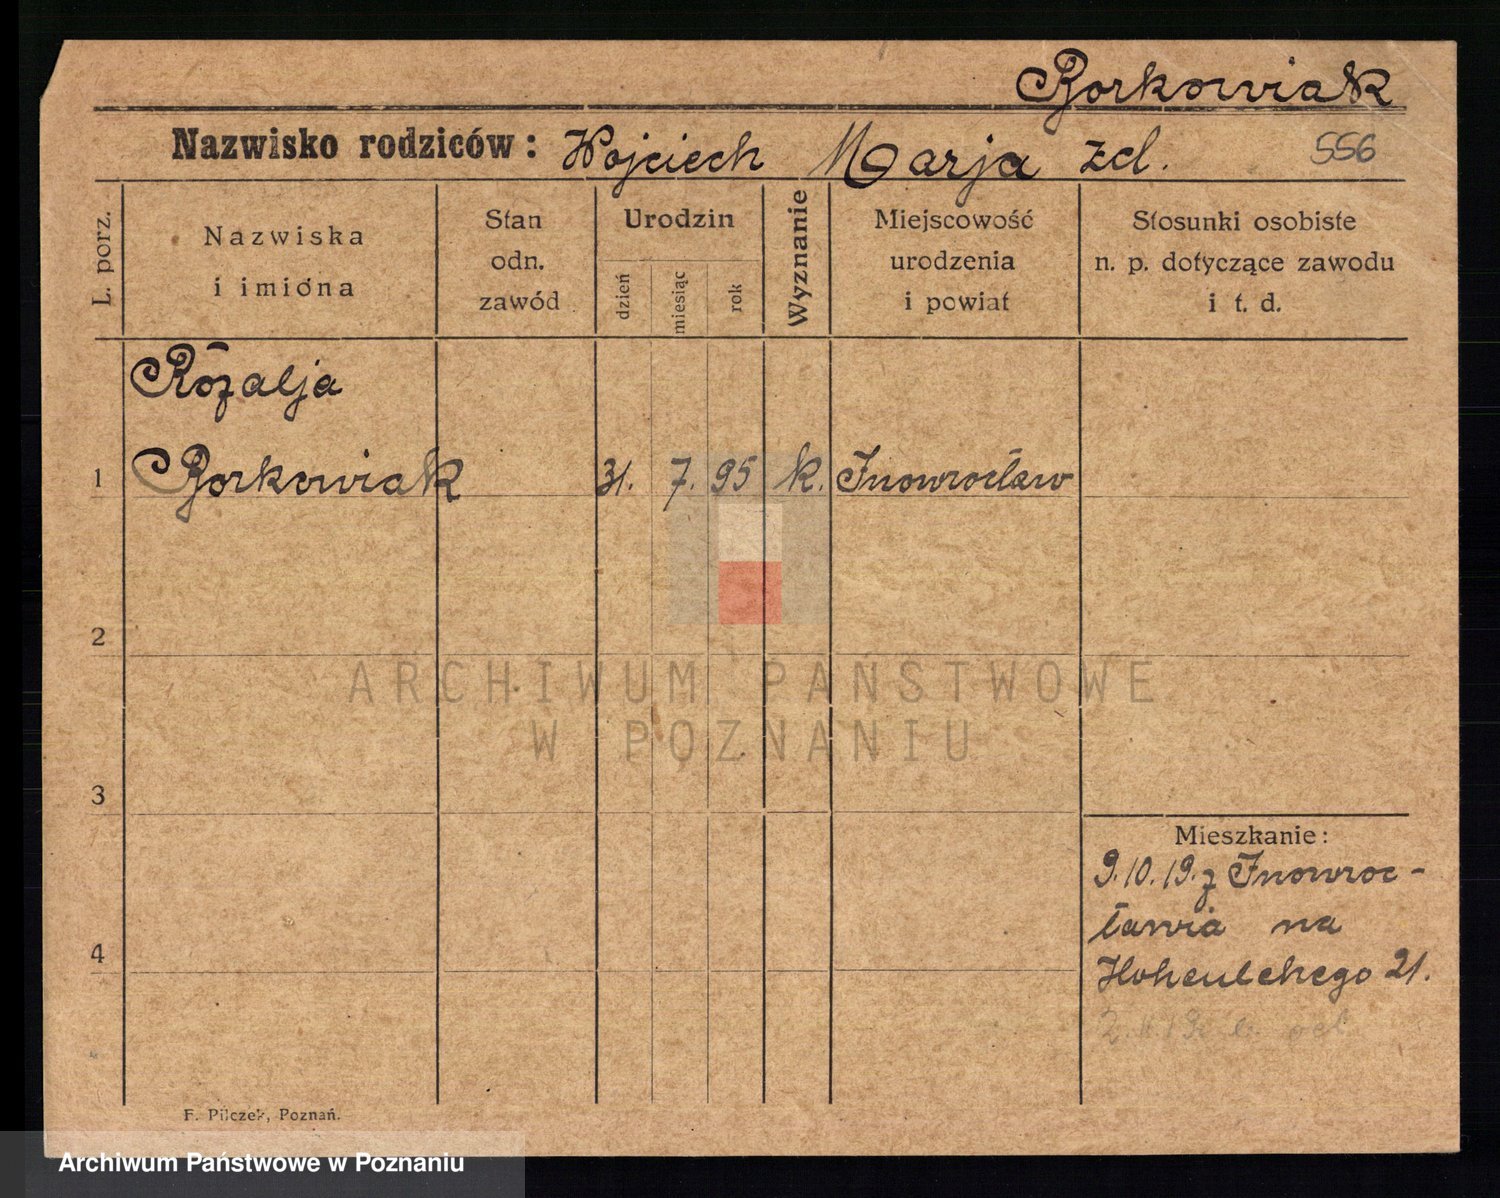 Borkowiak
Nazwisko rodziców: Wojciech Marja zd. 556
L. porz.
Nazwiska
i imióna
Stan
odn.
zawód
Urodzin
dzień
miesiąc
rok
Wyznanie
Miejscowość
urodzenia
i powiat
Stosunki osobiste
n. p. dotyczące zawodu
i t. d.
Rózalja
1 Borkowiak 31. 7. 95 k. Inowrocław
2
ARCHIWUM PAŃSTWOWE
W POZNANIU
3
Mieszkanie:
9.10.19. z Inowroc-
ławia na
4
21.
F. Pilczek, Poznań.
Archiwum Państwowe w Poznaniu